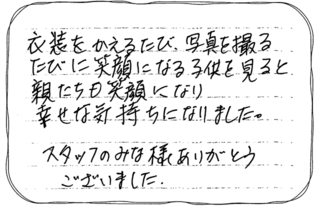 衣装をかえるたび、写真を撮る
たびに笑顔になる子供を見ると
親たちも笑顔になり
幸せな気持ちになりました。
スタッフのみな様ありがとう
ございました.